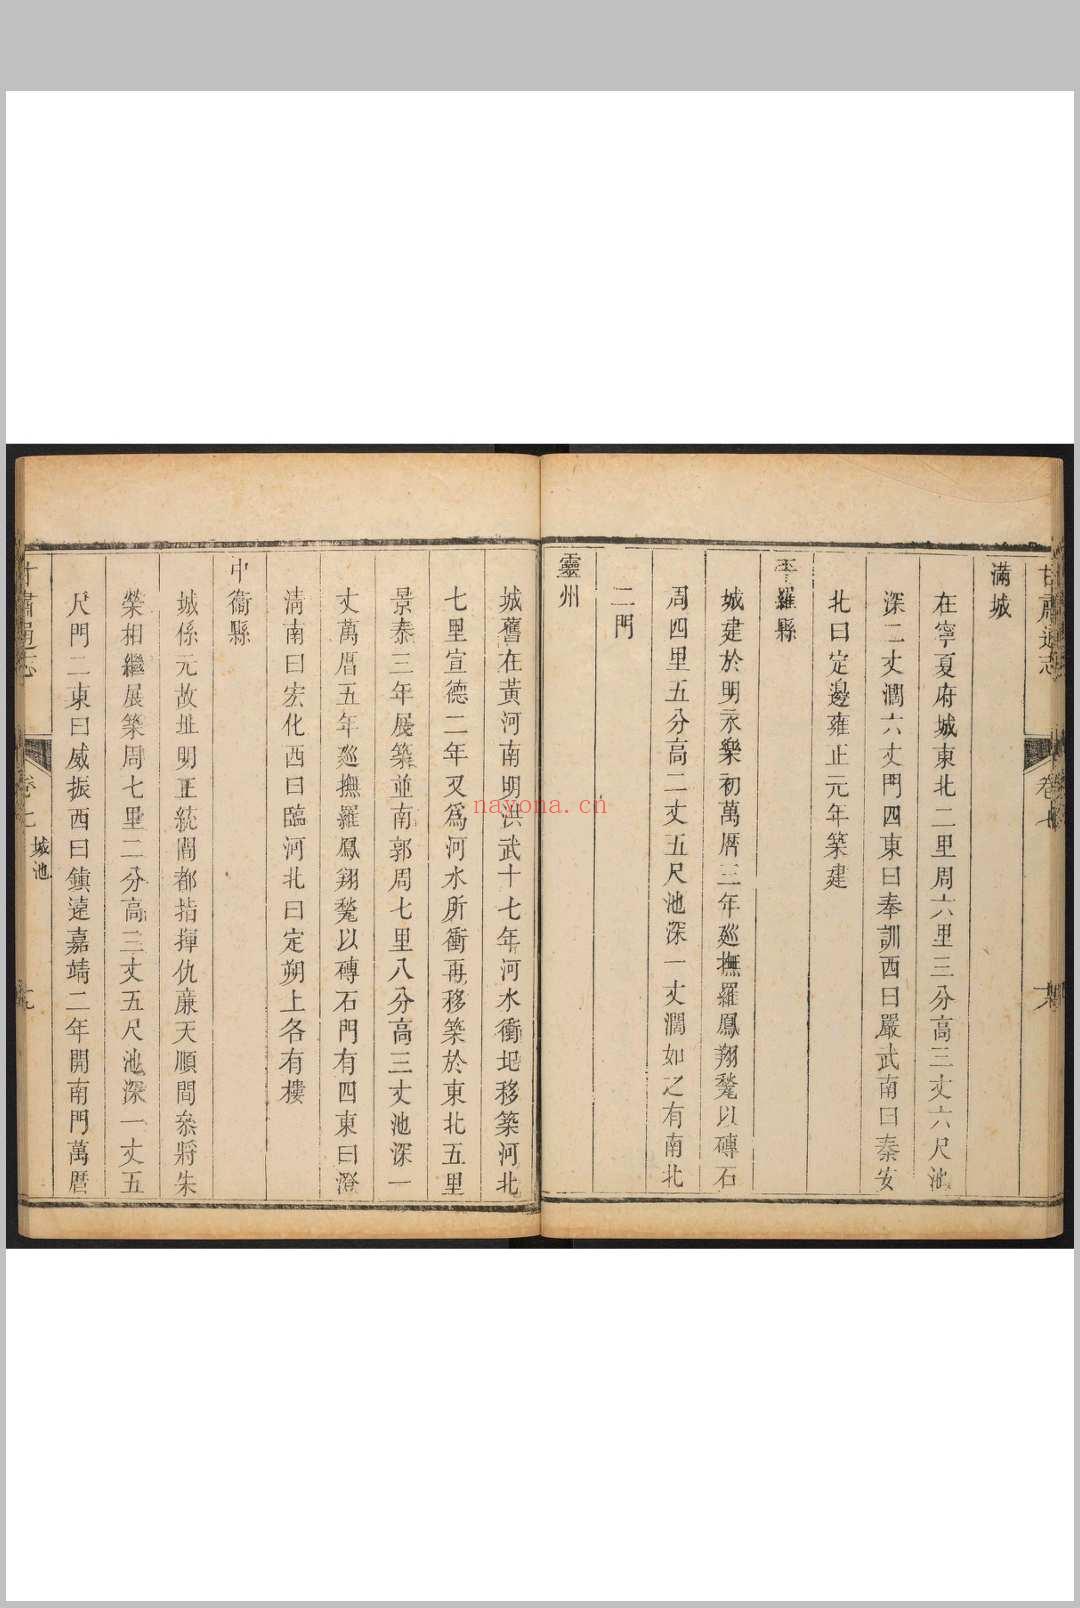 滿城
在寧夏府城東北二里周六里三分高三丈六尺池
深二丈濶六丈門四東曰奉訓西曰嚴武南曰秦安
北曰定邊雍正元年築建
平羅縣
城建於明永樂初萬厯三年廵撫羅鳳翔甃以磚石
周四里五分高二丈五尺池深一丈濶如之有南北
二門
靈州
城舊在黃河南明洪武十七年河水衝圮移築河北
七里宣德二年又爲河水所衝再移築於東北五里
景泰三年展築並南郭周七里八分高三丈池深一
丈萬厯五年廵撫羅鳳翔甃以磚石門有四東曰澄
清南曰宏化西曰臨河北曰定朔上各有樓
中衞縣
城係元故址明正統間都指揮仇廉天順間叅將朱
榮相繼展築周七里二分高三丈五尺池深一丈五
尺門二東曰威振西曰鎮遠嘉靖二年開南門萬厯
甘肅通志
卷七
城池
nayona.cn